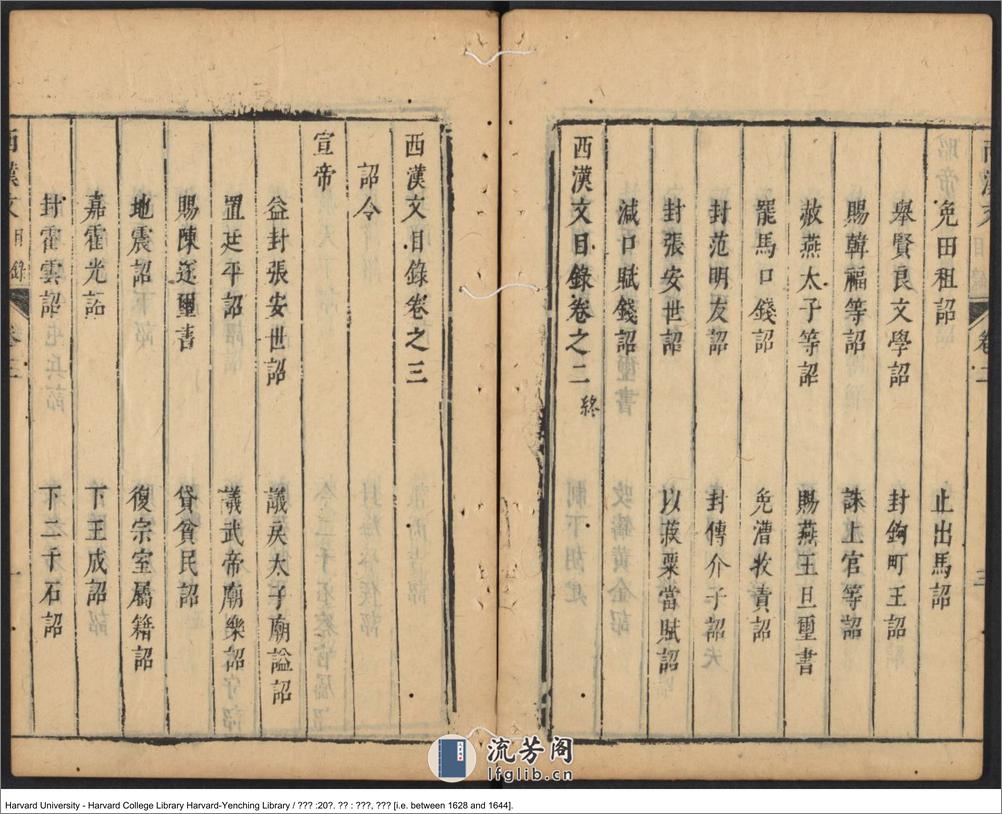 西漢文 目錄 卷二 三
免田租詔 止出馬詔
舉賢良文學詔 封鉤町王詔
賜韓福等詔 誅上官等詔
赦燕太子等詔 賜燕王旦璽書
罷馬口錢詔 免漕收責詔
封范明友詔 封傅介子詔
封張安世詔 以菽粟當賦詔
減口賦錢詔
西漢文目錄卷之二 終
西漢文目錄卷之三
詔令
宣帝
益封張安世詔 議戾太子廟謚詔
置廷平詔 議武帝廟樂詔
賜陳遂璽書 貸貧民詔
地震詔 復宗室屬籍詔
嘉霍光詔 下王成詔
封霍雲詔 下二千石詔
西漢文 目錄 卷三 一
流芳阁
lfglib.cn
Harvard University - Harvard College Library Harvard-Yenching Library / ??? :20?. ?? : ???, ??? [i.e. between 1628 and 1644].